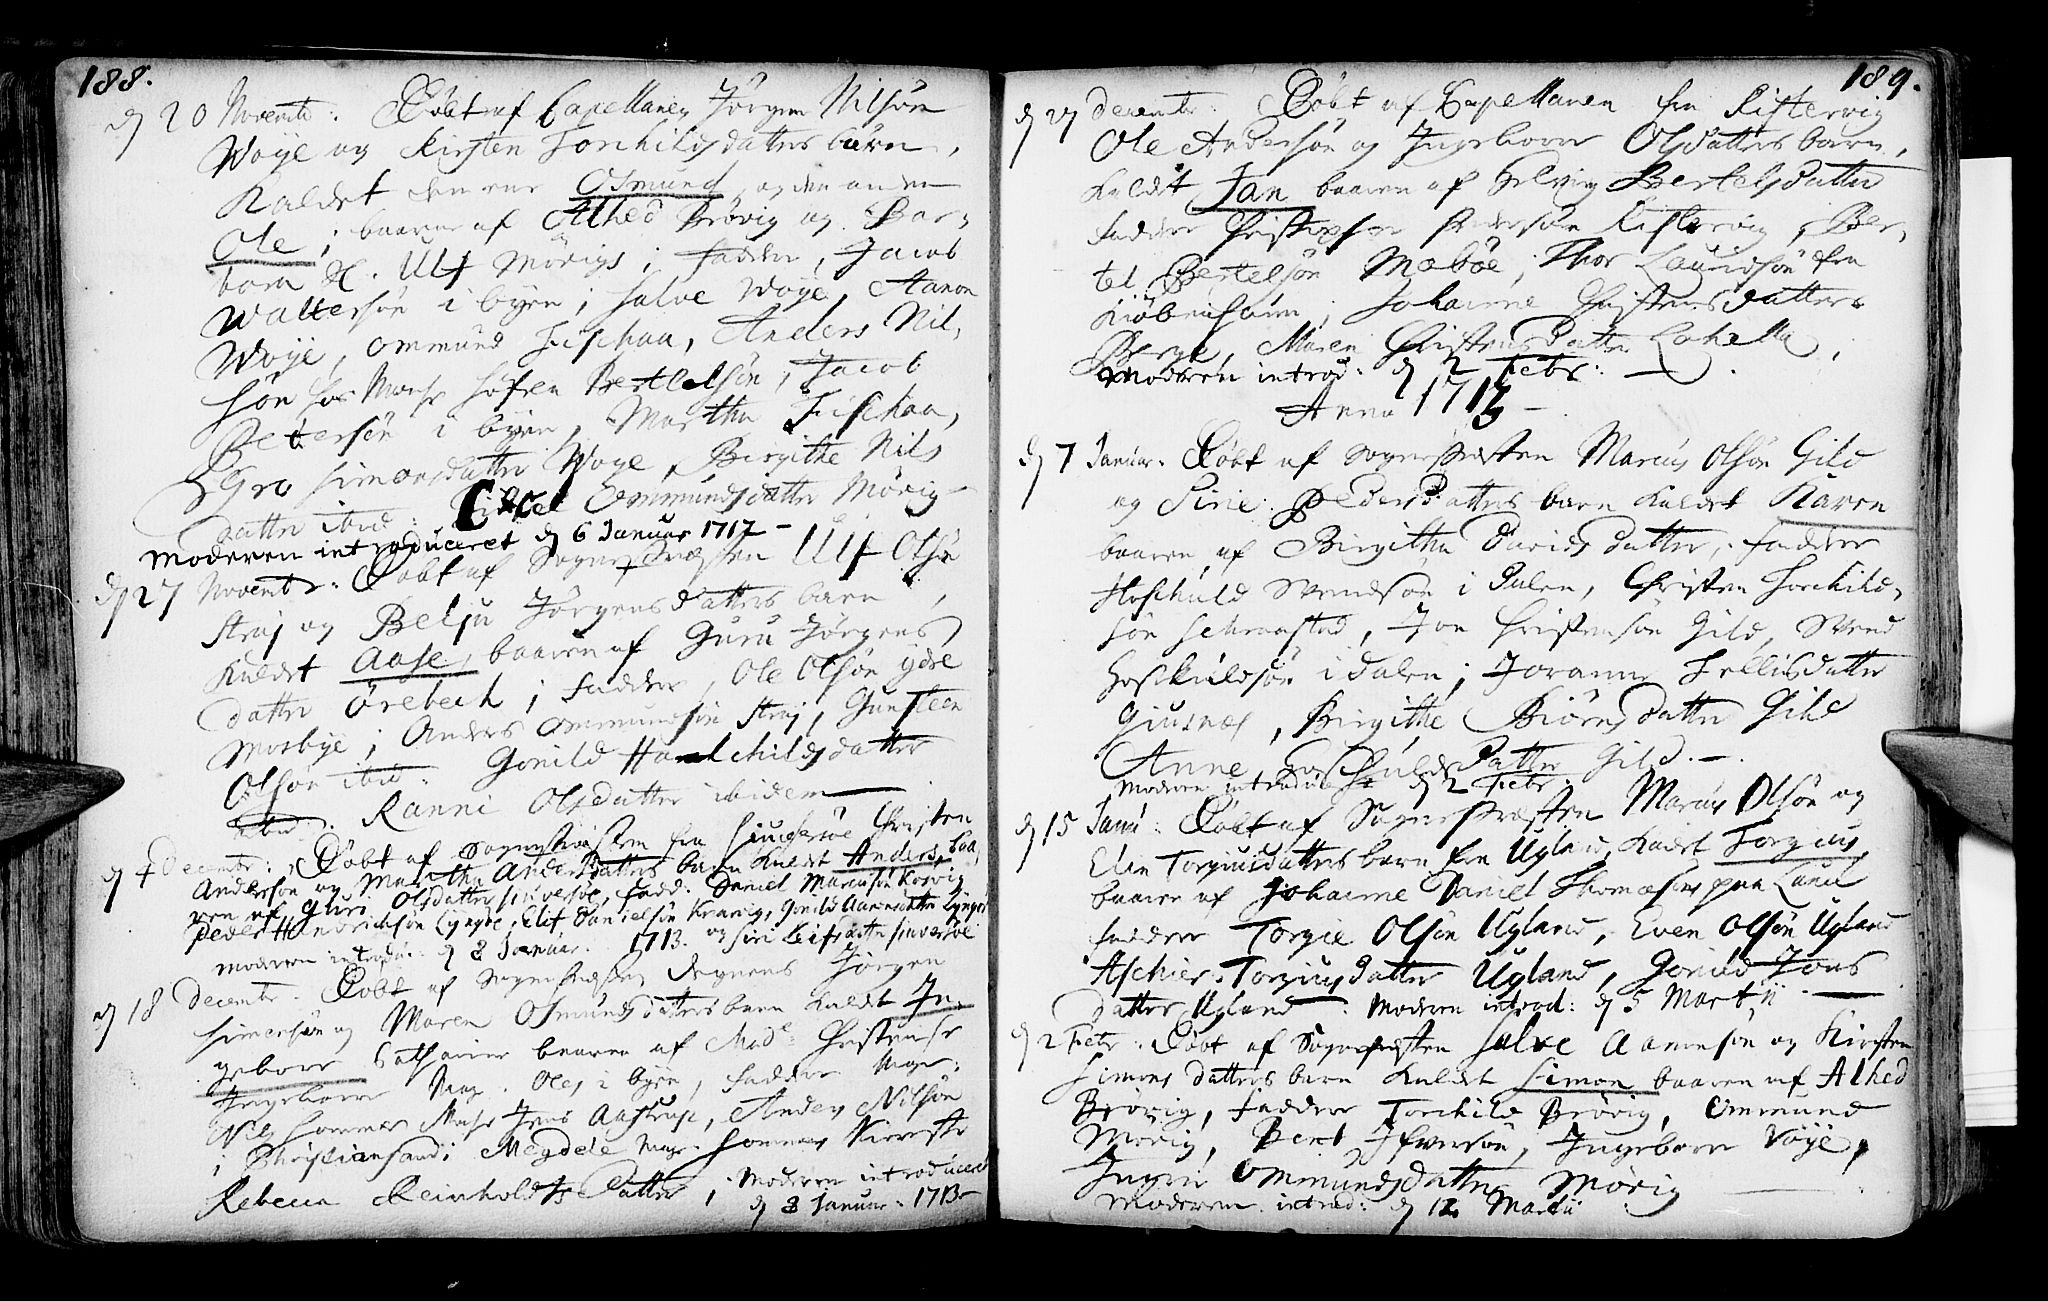 188.
d 20 Novembr: Döbt af Capellanen Jörgen Nilsön
Woye og Kirsten Torchildsdatters börn,
Kaldet den ene Osmund, og den anden
Ole; baaren af Alhed Brövig og Bar-
bara H. Ulf Mörigs; Fadder, Jacob
Waltersön i byen; Salve Woye, Aanon
Woye, Ommund Fischaa, Anders Nil-
sön hos Monsr Bertelsön, Jacob
Petersön i byen, Martha Fischaa,
Gro Simonsdatter Woye, Birgithe Nils
datter ibid: Ommundsdatter Mörig
Moderen introduceret d 6 Januar 1717 –
d 27 Novembr: Döbt af Sogne Præsten Ulf Olsön
Straj og Belju Jörgensdatters barn
Kaldet Aase, baaren af Guru Jörgens
datter Örebech; Fadder, Ole Olsön ydre
Mosbye; Anders Ommundsön Straj, Gunsteen
Olsön ibid: Gonild Harlchildsdatter
ibid: Ranni Olsdatter ibidem
d 4 Decembr: Döbt af Sognepræsten fra Christen
Andersön og Martha Andersdatters barn Kaldet Anders, baa-
ren af Guri Olsdatter, Fadd: Daniel
Peder Hendrichsön Lyngöe, Elif Danielsön, Gonild Aanensdatter
moderen introdu: d 8 Januar. 1713. og Siri Leifsdatter
d 18 Decembr. Döbt af Sognepræsten Degnens Jörgen
Simensön og Maren Osmundsdatters barn Kaldet In-
gebore Cathariner baaren af Mad: Christense
Ingeborre Oles i byen, Fadder
Monsr Jens Aastrup, Anders Nilsön
i Christiansand; Megdele
Rebecca Reinholdts Datter; Moderen introduceret
d 8 Januar: 1713
189.
d 27 Decembr: Döbt af Capellanen fra Kistervig
Ole Andersön og Ingeborre Olsdatters barn,
Kaldet Jan baaren af Bertelsdatter
Fadder Christopher Andersön Kistervig, Ber-
tel Bertelsön Maböe; Thor Lauridsön fra
Kiöbenhavn; Johanne Christensdatter
Berge, Maren Christensdatter Lahella,
Moderen introd: d 2 Febr: —
Anno 1713 –
d 7 Januar. Döbt af Sognepræsten Marcus Olsön Gild
og Sirie Pedersdatters barn Kaldet Karen
baaren af Birgitha Davidsdatter, Fadder
Hoskuld Svendsön i Dalen, Christen Torchild-
sön Schraastad, Jon Christensön Gild, Svend
Hoskuldsön i dalen; Joranne Tellisdatter
Giusnes, Birgithe Biörnsdatter Gild
Anne Hoskuldsdatter Gild. –
Moderen introdu: d 2 Febr:
d 15 Janu: Döbt af Sognepræsten Marcus Olsön og
Elen Torgiusdatters barn fra Ugland, Kaldet Torgius,
baaren af Johanne Daniel Thomæsens paa Lund
Fadder Torgie Olsön Ugland, Even Olsön Ugland
Aschier Torgiusdatter Ugland, Gonild Jons
datter Ugland. Moderen introd: d 5 Martii –
d 2 Febr: Döbt af Sognepræsten Salve Aanonsön og Kirsten
Simons datters barn Kaldet Simon baaren af Alhed
Brövig, Fadder Torchild Brövig, Ommund
Mörig, Bent Ifversön, Ingeborre Vöye,
Ingri Ommundsdatter Mörig
Moderen introd: d 12 Martii